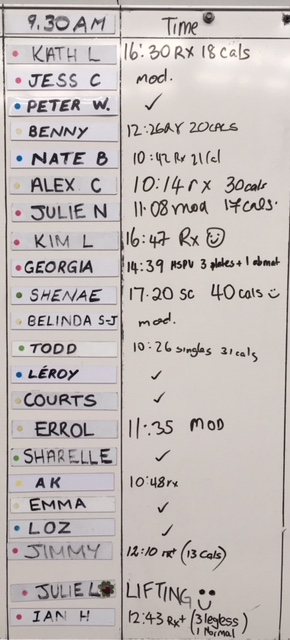 9.30AM Time
KATH L 16:30 RX 18 cals
JESS C mod.
PETER W. ✓
BENNY 12:26RX 20CALS
NATE B 10:42 Rx 21Cal
ALEX C 10:14 rx 30cals
JULIE N 11.08 mod 17cals.
KIM L 16:47 Rx ☺
GEORGIA 14:39 HSPU 3 plates + 1 abmat
SHENAE 17.20 SC 40cals ☺
BELINDA S-J mod.
TODD 10:26 singles 31cals
LÉROY ✓
COURTS ✓
ERROL 11:35 MOD
SHARELLE ✓
AK 10:48rx
EMMA ✓
LOZ ✓
JIMMY 12:10 rx+ (13 Cals)
JULIE L LIFTING ☺
IAN H 12:43 Rx+ (3 legless
1 Normal)